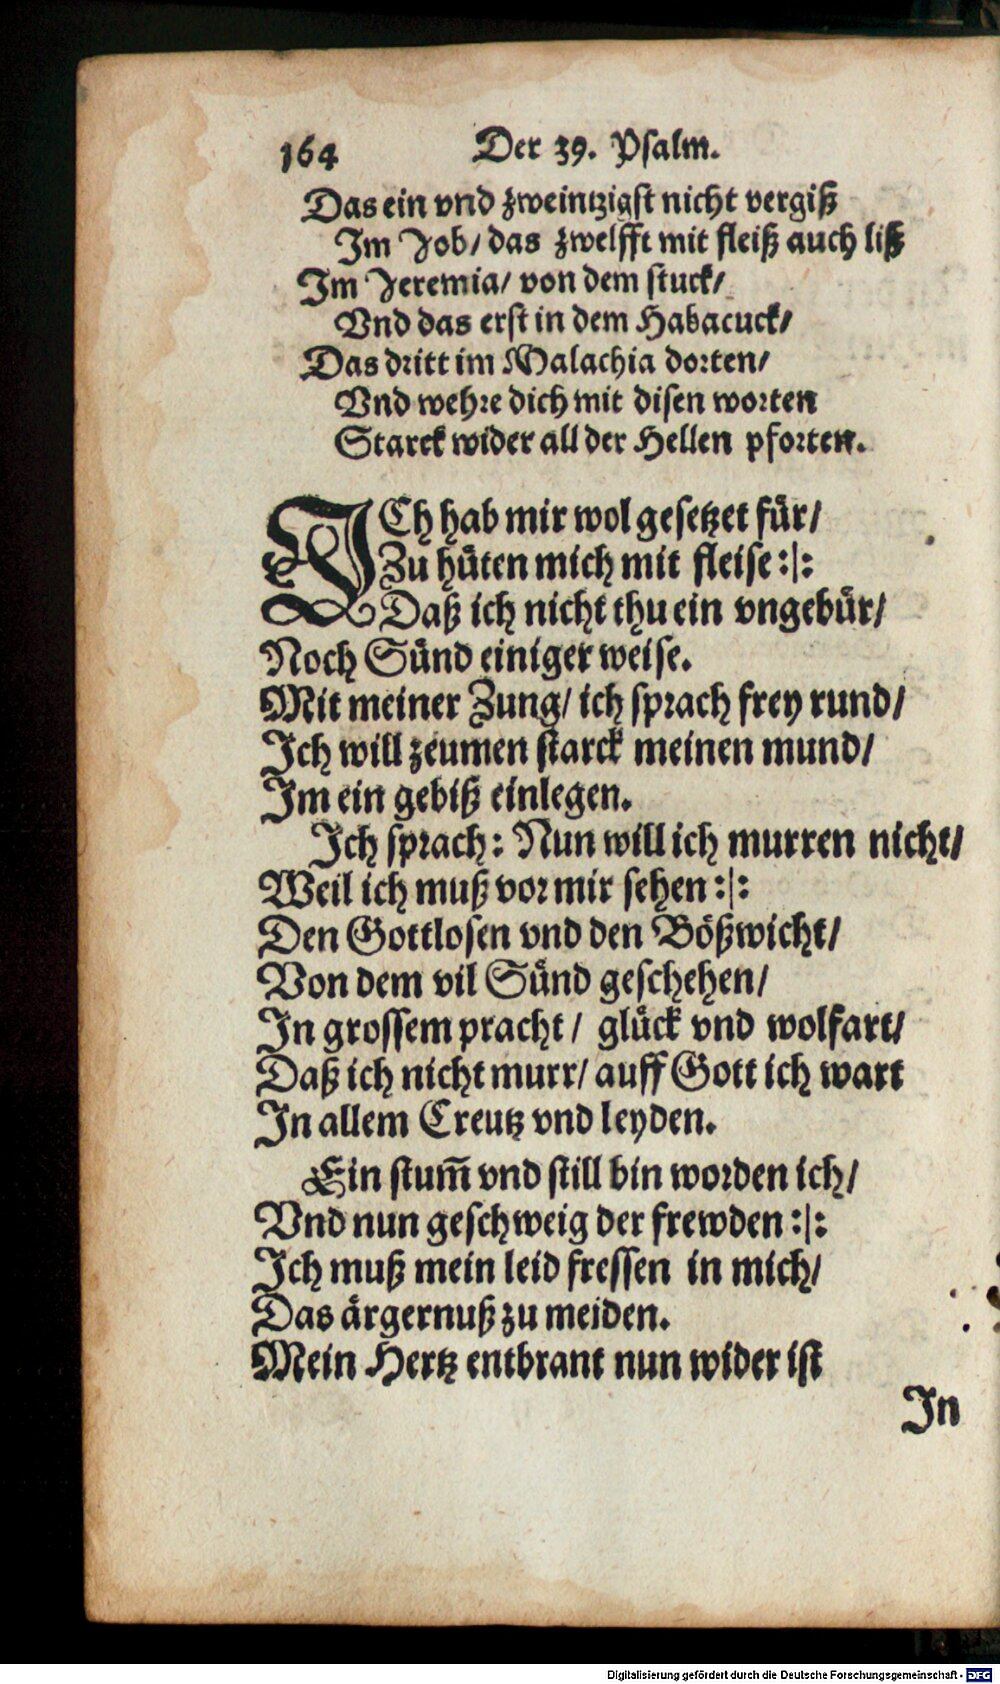 164 Der 39. Psalm.
Das ein vnd zweintzigst nicht vergiß
Im Job/ das zwelfft mit fleiß auch liß
Im Jeremia/ von dem stuck/
Vnd das erst in dem Habacuck/
Das dritt im Malachia dorten/
Vnd wehre dich mit disen worten
Starck wider all der Hellen pforten.
ICh hab mir wol gesetzet für/
Zu hüten mich mit fleise :|:
Daß ich nicht thu ein vngebür/
Noch Sünd einiger weise.
Mit meiner Zung/ ich sprach frey rund/
Ich will zeumen starck meinen mund/
Im ein gebiß einlegen.
Ich sprach: Nun will ich murren nicht/
Weil ich muß vor mir sehen :|:
Den Gottlosen vnd den Bößwicht/
Von dem vil Sünd geschehen/
In grossem pracht/ glück vnd wolfart/
Daß ich nicht murr/ auff Gott ich wart
In allem Creutz vnd leyden.
Ein stum̃ vnd still bin worden ich/
Vnd nun geschweig der frewden :|:
Ich muß mein leid fressen in mich/
Das ärgernuß zu meiden.
Mein Hertz entbrant nun wider ist
In
Digitalisierung gefördert durch die Deutsche Forschungsgemeinschaft - DFG